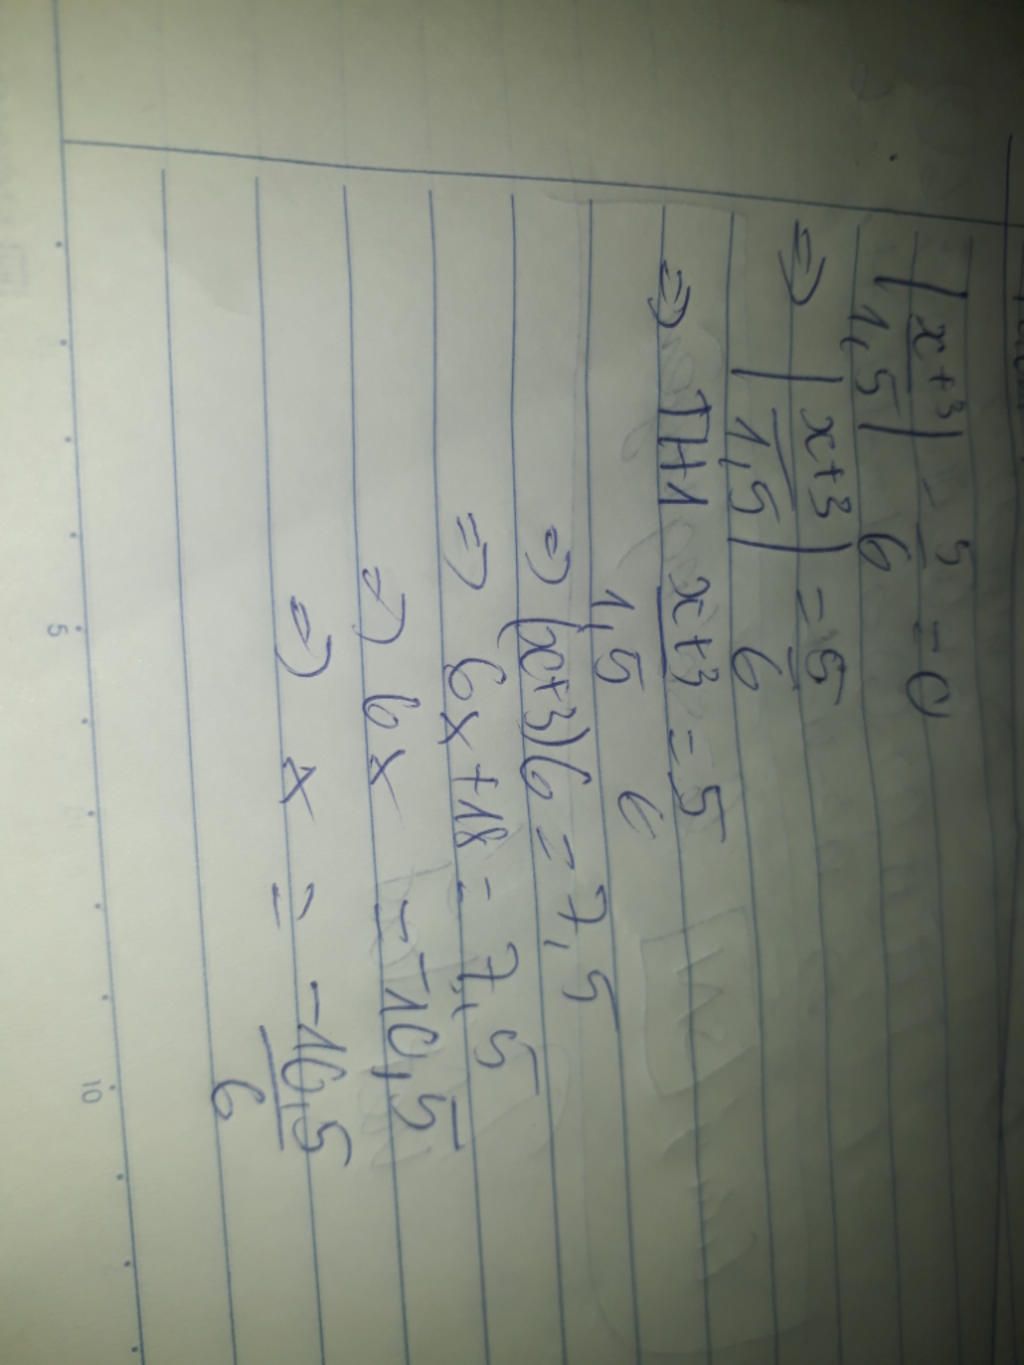 |x+3/1,5| - 5/6 = 0
=> |x+3/1,5| = 5/6
=> TH1 x+3/1,5 = 5/6
=> (x+3)6 = 7,5
=> 6x + 18 = 7,5
=> 6x = -10,5
=> x = -10,5/6
5 10